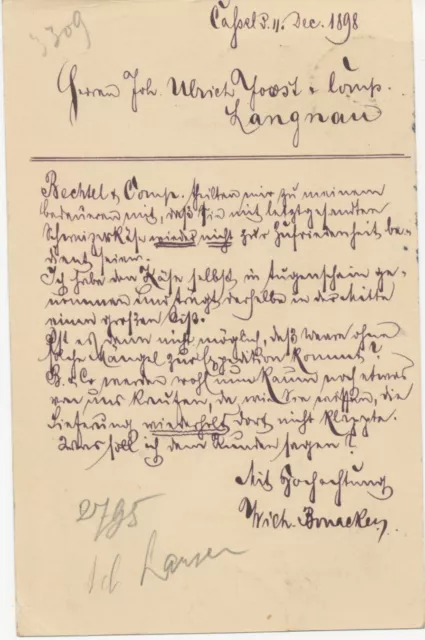 3309
Cassel d. 11. Dec. 1898
Herren Joh. Ulrich Joost & Comp.
Langnau
Bechtel & Comp. theilten mir zu meinem
bedauern mit, daß Sie mit letztgesandten
Schweizerkäse wieder nicht zur Zufriedenheit be-
dient seien.
Ich habe den Käse selbst in Augenschein ge-
nommen und trägt derselbe in der Mitte
einen großen Riß.
Ist es denn nicht möglich, daß Waare ohne
solche Mängel zur Expedition kommt?
B. & Co werden wohl nun kaum noch etwas
von uns kaufen, da, wie Sie wissen, die
Lieferung wiederholt dort nicht klappte.
Was soll ich dem Kunden sagen?
Mit Hochachtung
Wilh.
2795